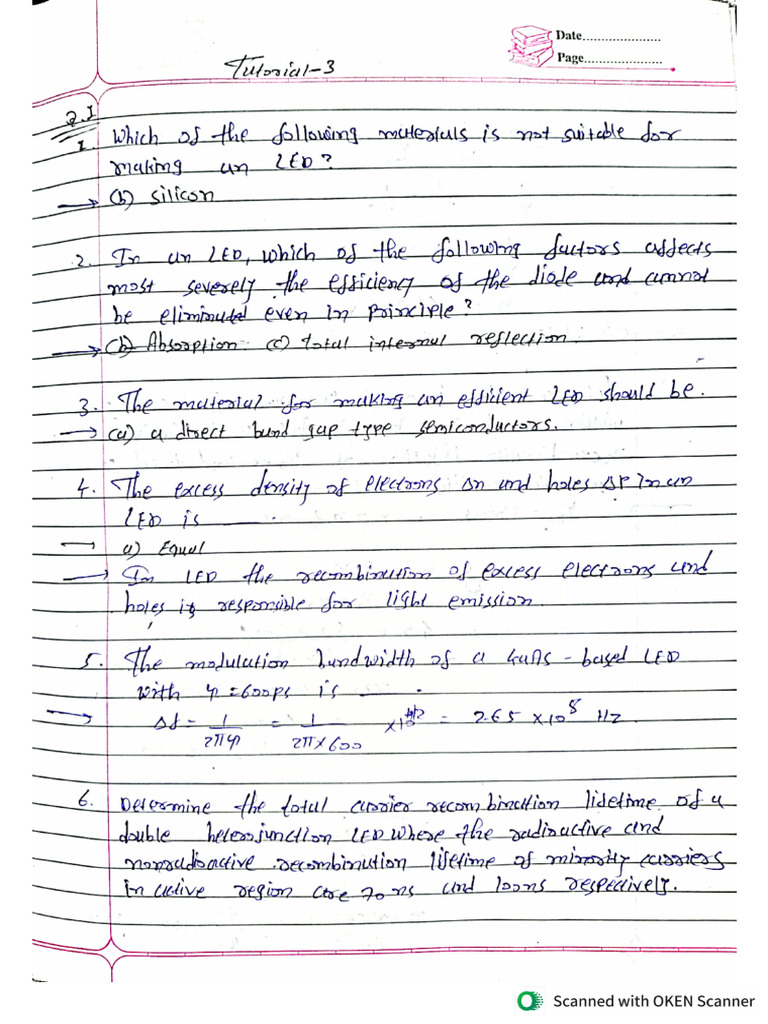 Date.....................
Page.....................
Tutorial-3
Q.1
1. Which of the following materials is not suitable for
making an LED?
→ (b) silicon
2. In an LED, which of the following factors affects
most severely the efficiency of the diode and cannot
be eliminated even in principle?
→ (b) Absorption (c) total internal reflection
3. The material for making an efficient LED should be.
→ (a) a direct band gap type semiconductors.
4. The excess density of electrons Δn and holes ΔP in an
LED is ______.
→ a) Equal
→ In LED the recombination of excess electrons and
holes is responsible for light emission.
5. The modulation bandwidth of a GaAs-based LED
with τ = 600ps is ______.
→ Δf = 1/2πτ = 1/2π×600 ×10^12 = 2.65 ×10^8 Hz
6. Determine the total carrier recombination lifetime of a
double heterojunction LED where the radioactive and
nonradoactive recombination lifetime of minority carriers
in active region are 70ns and 100ns respectively.
Scanned with OKEN Scanner